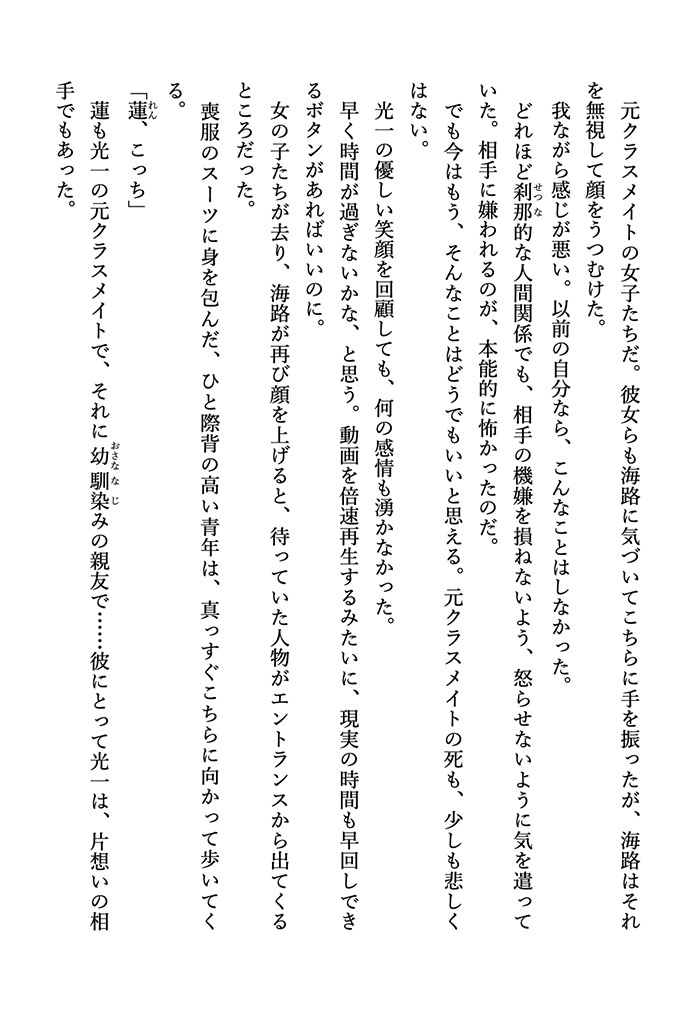 元クラスメイトの女子たちだ。彼女らも海路に気づいてこちらに手を振ったが、海路はそれ
を無視して顔をうつむけた。
我ながら感じが悪い。以前の自分なら、こんなことはしなかった。
どれほど刹那的な人間関係でも、相手の機嫌を損ねないよう、怒らせないように気を遣って
いた。相手に嫌われるのが、本能的に怖かったのだ。
でも今はもう、そんなことはどうでもいいと思える。元クラスメイトの死も、少しも悲しく
はない。
光一の優しい笑顔を回顧しても、何の感情も湧かなかった。
早く時間が過ぎないかな、と思う。動画を倍速再生するみたいに、現実の時間も早回しでき
るボタンがあればいいのに。
女の子たちが去り、海路が再び顔を上げると、待っていた人物がエントランスから出てくる
ところだった。
喪服のスーツに身を包んだ、ひと際背の高い青年は、真っすぐこちらに向かって歩いてく
る。
「蓮、こっち」
蓮も光一の元クラスメイトで、それに幼馴染みの親友で……彼にとって光一は、片想いの相
手でもあった。